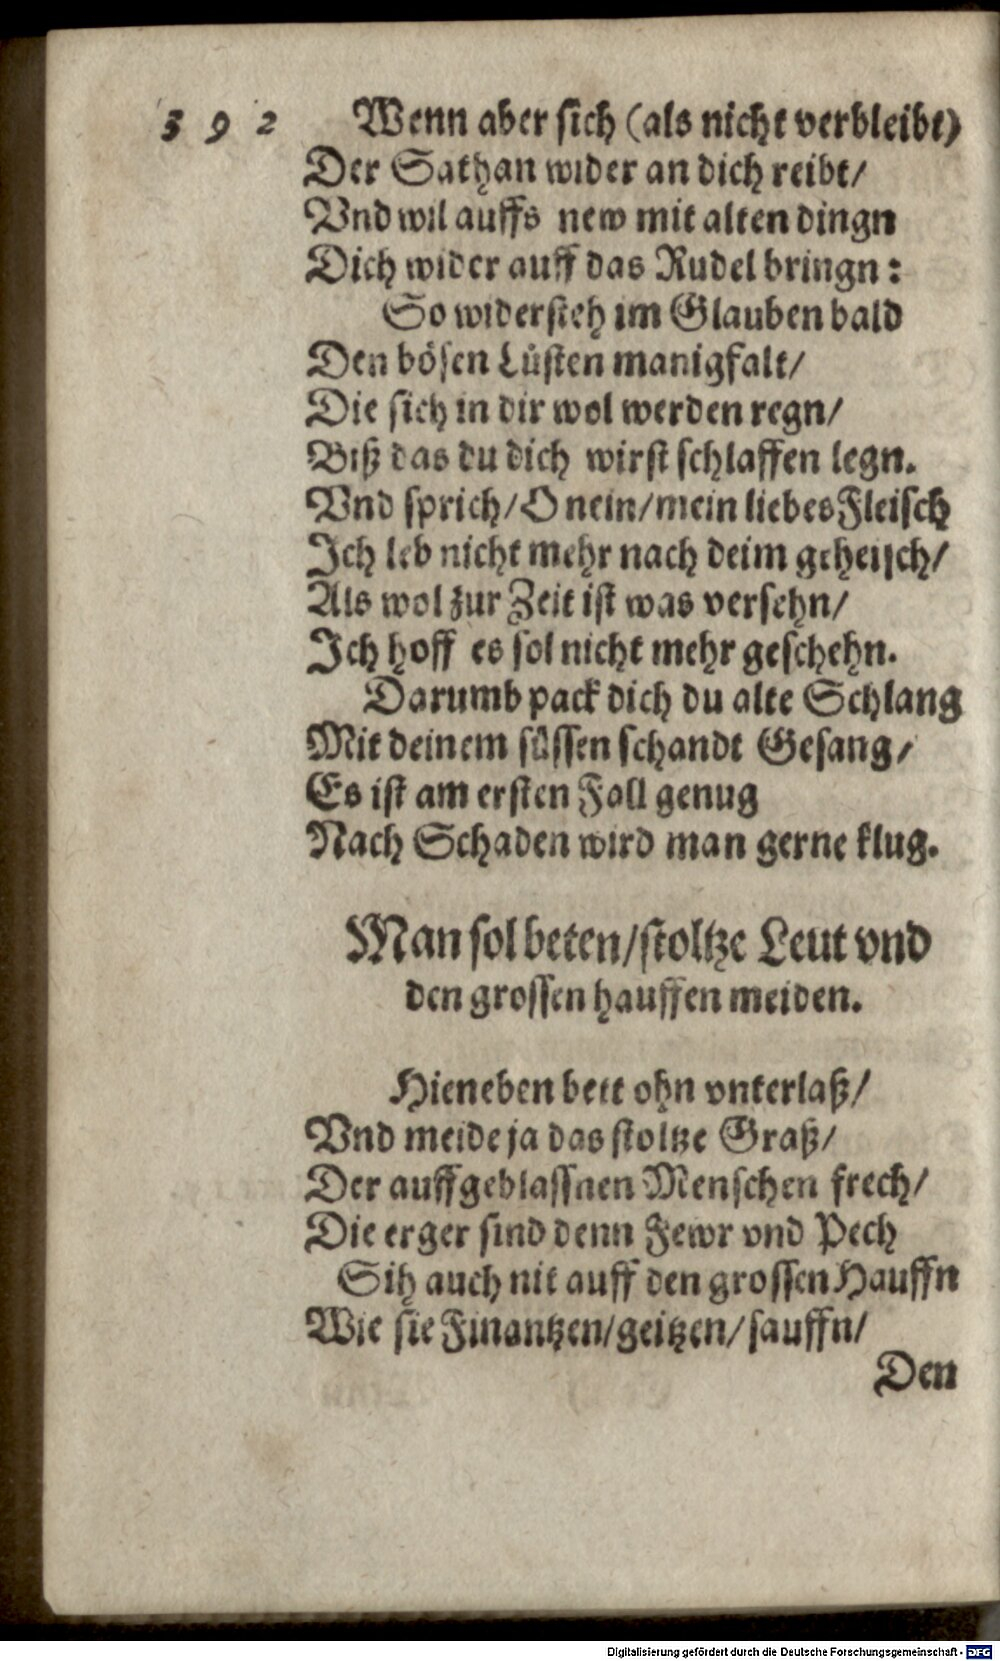 392 Wenn aber sich (als nicht verbleibt)
Der Sathan wider an dich reibt/
Vnd wil auffs new mit alten dingn
Dich wider auff das Rudel bringn:
So widersteh im Glauben bald
Den bösen Lüsten manigfalt/
Die sich in dir wol werden regn/
Biß das du dich wirst schlaffen legn.
Vnd sprich/O nein/mein liebes Fleisch
Ich leb nicht mehr nach deim geheisch/
Als wol zur Zeit ist was versehn/
Ich hoff es sol nicht mehr geschehn.
Darumb pack dich du alte Schlang
Mit deinem süssen schandt Gesang/
Es ist am ersten Fall genug
Nach Schaden wird man gerne klug.
Man sol beten/stoltze Leut vnd
den grossen hauffen meiden.
Hieneben bett ohn vnterlaß/
Vnd meide ja das stoltze Graß/
Der auffgeblassnen Menschen frech/
Die erger sind denn Fewr vnd Pech
Sih auch nit auff den grossen Hauffn
Wie sie Finantzen/geitzen/sauffn/
Den
Digitalisierung gefördert durch die Deutsche Forschungsgemeinschaft - DFG